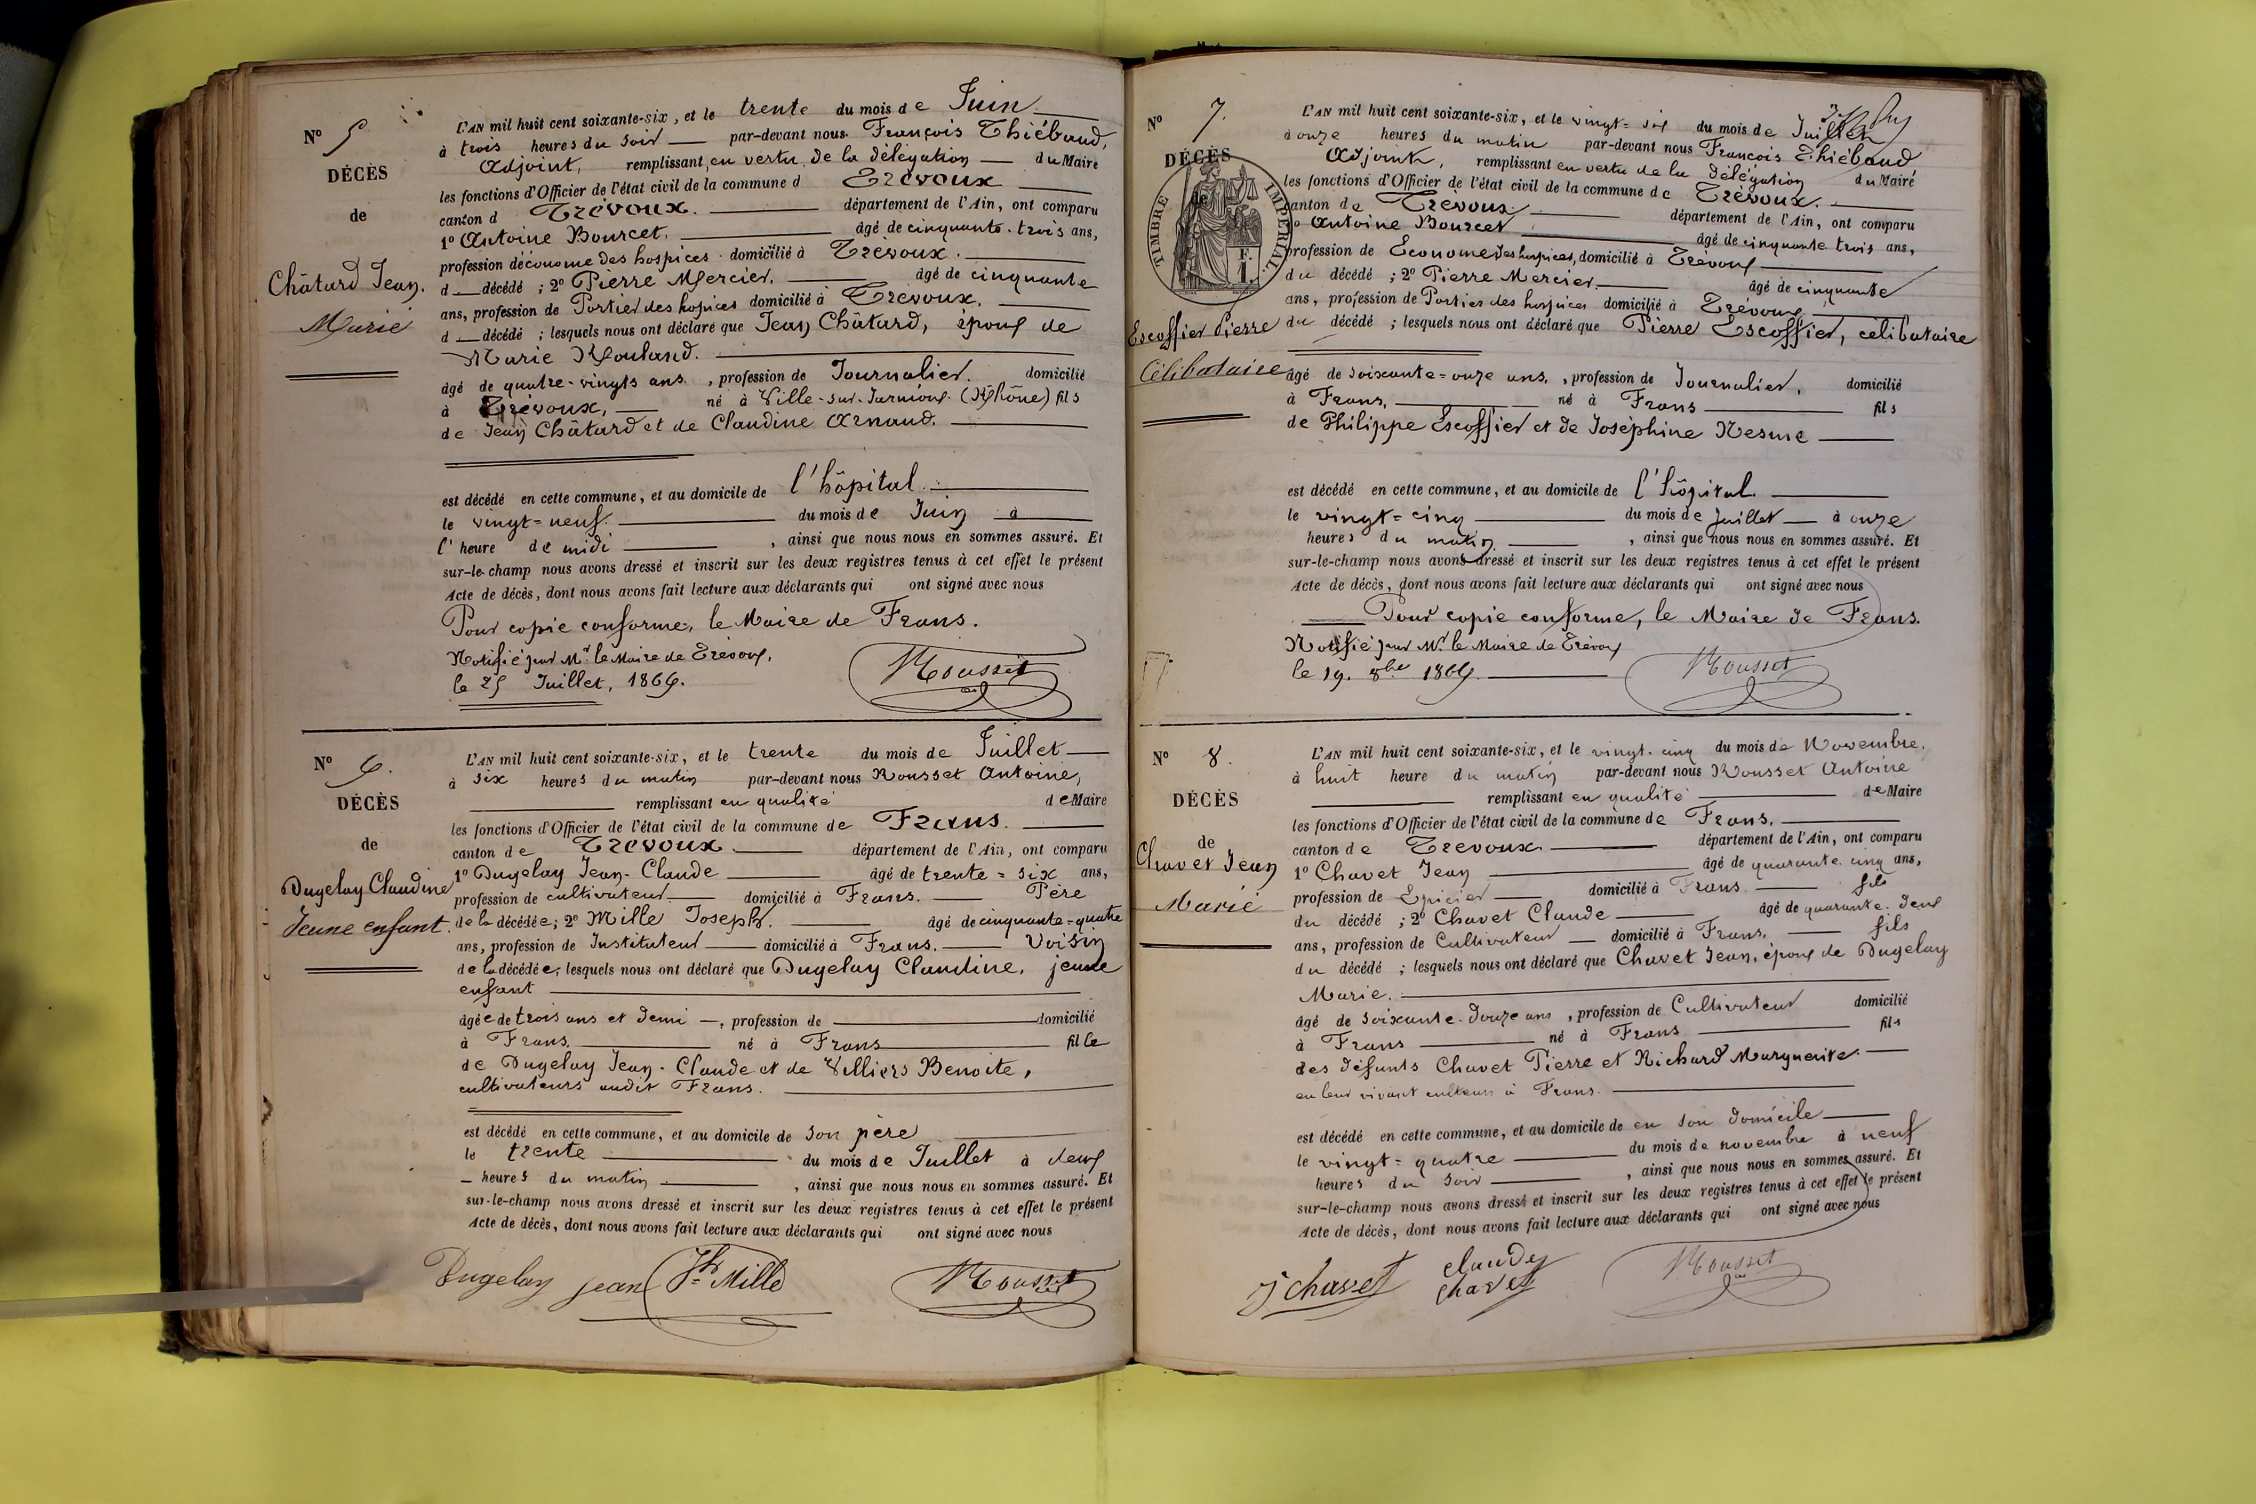 N° 5
DÉCÈS
de
Châtard Jean,
Marié
L'AN mil huit cent soixante-six, et le trente du mois de Juin
à trois heures du soir par-devant nous François Thiébaud,
Adjoint, remplissant, en vertu de la délégation du Maire
les fonctions d'Officier de l'état civil de la commune d Trévoux
canton d Trévoux. département de l'Ain, ont comparu
1° Antoine Bourcet. âgé de cinquante-trois ans,
profession d'économe des hospices domicilié à Trévoux.
d décédé ; 2° Pierre Mercier. âgé de cinquante
ans, profession de Portier des hospices domicilié à Trévoux.
d décédé ; lesquels nous ont déclaré que Jean Châtard, époux de
Marie Rouland.
âgé de quatre-vingts ans , profession de Journalier. domicilié
à Trévoux, né à Ville-sur-Jarnioux (Rhône) fils
de Jean Châtard et de Claudine Arnaud.
est décédé en cette commune, et au domicile de l'hôpital
le vingt=neuf. du mois de Juin à
l'heure de midi , ainsi que nous nous en sommes assuré. Et
sur-le-champ nous avons dressé et inscrit sur les deux registres tenus à cet effet le présent
Acte de décès, dont nous avons fait lecture aux déclarants qui ont signé avec nous
Pour copie conforme, le Maire de Frans.
Notifié par Mr. le Maire de Trévoux,
le 25 Juillet, 1866.
Rousset
N° 6.
DÉCÈS
de
Dugelay Claudine
Jeune enfant.
L'AN mil huit cent soixante-six, et le trente du mois de Juillet
à six heures du matin par-devant nous Rousset Antoine,
remplissant en qualité de Maire
les fonctions d'Officier de l'état civil de la commune de Frans.
canton de Trévoux département de l'Ain, ont comparu
1° Dugelay Jean-Claude âgé de trente=six ans,
profession de cultivateur domicilié à Frans. Père
de la décédée; 2° Mille Joseph. âgé de cinquante=quatre
ans, profession de Instituteur domicilié à Frans. Voisin
de la décédée; lesquels nous ont déclaré que Dugelay Claudine, jeune
enfant
âgée de trois ans et demi , profession de domicilié
à Frans. né à Frans fille
de Dugelay Jean-Claude et de Villiers Benoite,
cultivateurs audit Frans.
est décédé en cette commune, et au domicile de son père
le trente du mois de Juillet à deux
heures du matin , ainsi que nous nous en sommes assuré. Et
sur-le-champ nous avons dressé et inscrit sur les deux registres tenus à cet effet le présent
Acte de décès, dont nous avons fait lecture aux déclarants qui ont signé avec nous
Dugelay jean Jh Mille Rousset
N° 7.
DÉCÈS
de
TIMBRE IMPÉRIAL
Escoffier Pierre
Célibataire
L'AN mil huit cent soixante-six, et le vingt=six du mois de Juillet
à onze heures du matin par-devant nous François Thiébaud
Adjoint, remplissant en vertu de la délégation du Maire
les fonctions d'Officier de l'état civil de la commune de Trévoux.
canton de Trévoux département de l'Ain, ont comparu
1° Antoine Bourcet âgé de cinquante trois ans,
profession de Econome des hospices, domicilié à Trévoux
du décédé ; 2° Pierre Mercier. âgé de cinquante
ans, profession de Portier des hospices domicilié à Trévoux
du décédé ; lesquels nous ont déclaré que Pierre Escoffier, célibataire
âgé de soixante=onze ans. , profession de Journalier. domicilié
à Frans. né à Frans fils
de Philippe Escoffier et de Joséphine Nesme
est décédé en cette commune, et au domicile de l'hôpital.
le vingt=cinq du mois de Juillet à onze
heures du matin , ainsi que nous nous en sommes assuré. Et
sur-le-champ nous avons dressé et inscrit sur les deux registres tenus à cet effet le présent
Acte de décès, dont nous avons fait lecture aux déclarants qui ont signé avec nous
Pour copie conforme, le Maire de Frans.
Notifié par Mr. le Maire de Trévoux
le 19. 8bre 1866.
Rousset
N° 8.
DÉCÈS
de
Chavet Jean
Marié
L'AN mil huit cent soixante-six, et le vingt-cinq du mois de Novembre.
à huit heure du matin par-devant nous Rousset Antoine
remplissant en qualité de Maire
les fonctions d'Officier de l'état civil de la commune de Frans.
canton de Trévoux département de l'Ain, ont comparu
1° Chavet Jean âgé de quarante-cinq ans,
profession de Epicier domicilié à Frans fils
du décédé ; 2° Chavet Claude âgé de quarante-deux
ans, profession de Cultivateur domicilié à Frans, fils
du décédé ; lesquels nous ont déclaré que Chavet Jean, époux de Dugelay
Marie.
âgé de soixante-douze ans , profession de Cultivateur domicilié
à Frans né à Frans fils
des défunts Chavet Pierre et Richard Marguerite.
en leur vivant cultrs à Frans.
est décédé en cette commune, et au domicile de en son domicile
le vingt=quatre du mois de novembre à neuf
heures du soir , ainsi que nous nous en sommes assuré. Et
sur-le-champ nous avons dressé et inscrit sur les deux registres tenus à cet effet le présent
Acte de décès, dont nous avons fait lecture aux déclarants qui ont signé avec nous
j chavet claude chavet Rousset